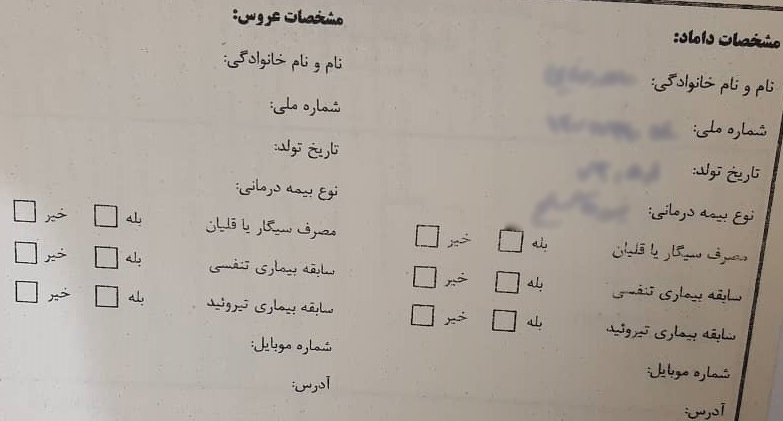 مشخصات داماد:
نام و نام خانوادگی:
شماره ملی:
تاریخ تولد:
نوع بیمه درمانی:
مصرف سیگار یا قلیان بله خیر
سابقه بیماری تنفسی بله خیر
سابقه بیماری تیروئید بله خیر
شماره موبایل:
آدرس:
مشخصات عروس:
نام و نام خانوادگی:
شماره ملی:
تاریخ تولد:
نوع بیمه درمانی:
مصرف سیگار یا قلیان بله خیر
سابقه بیماری تنفسی بله خیر
سابقه بیماری تیروئید بله خیر
شماره موبایل:
آدرس: